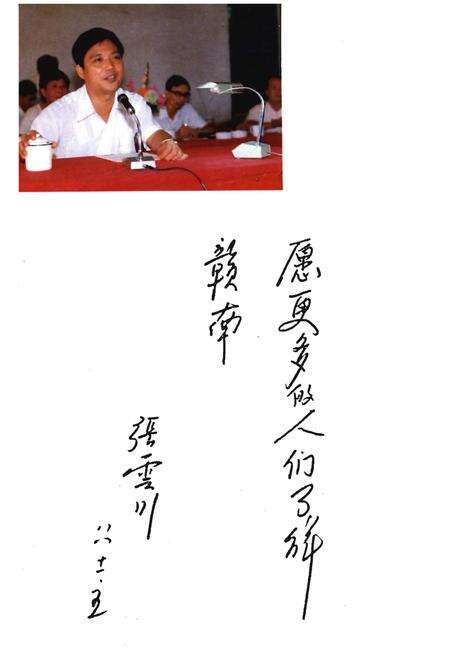 愿更多的人们了解
赣南
張雲川
八八.十二.五